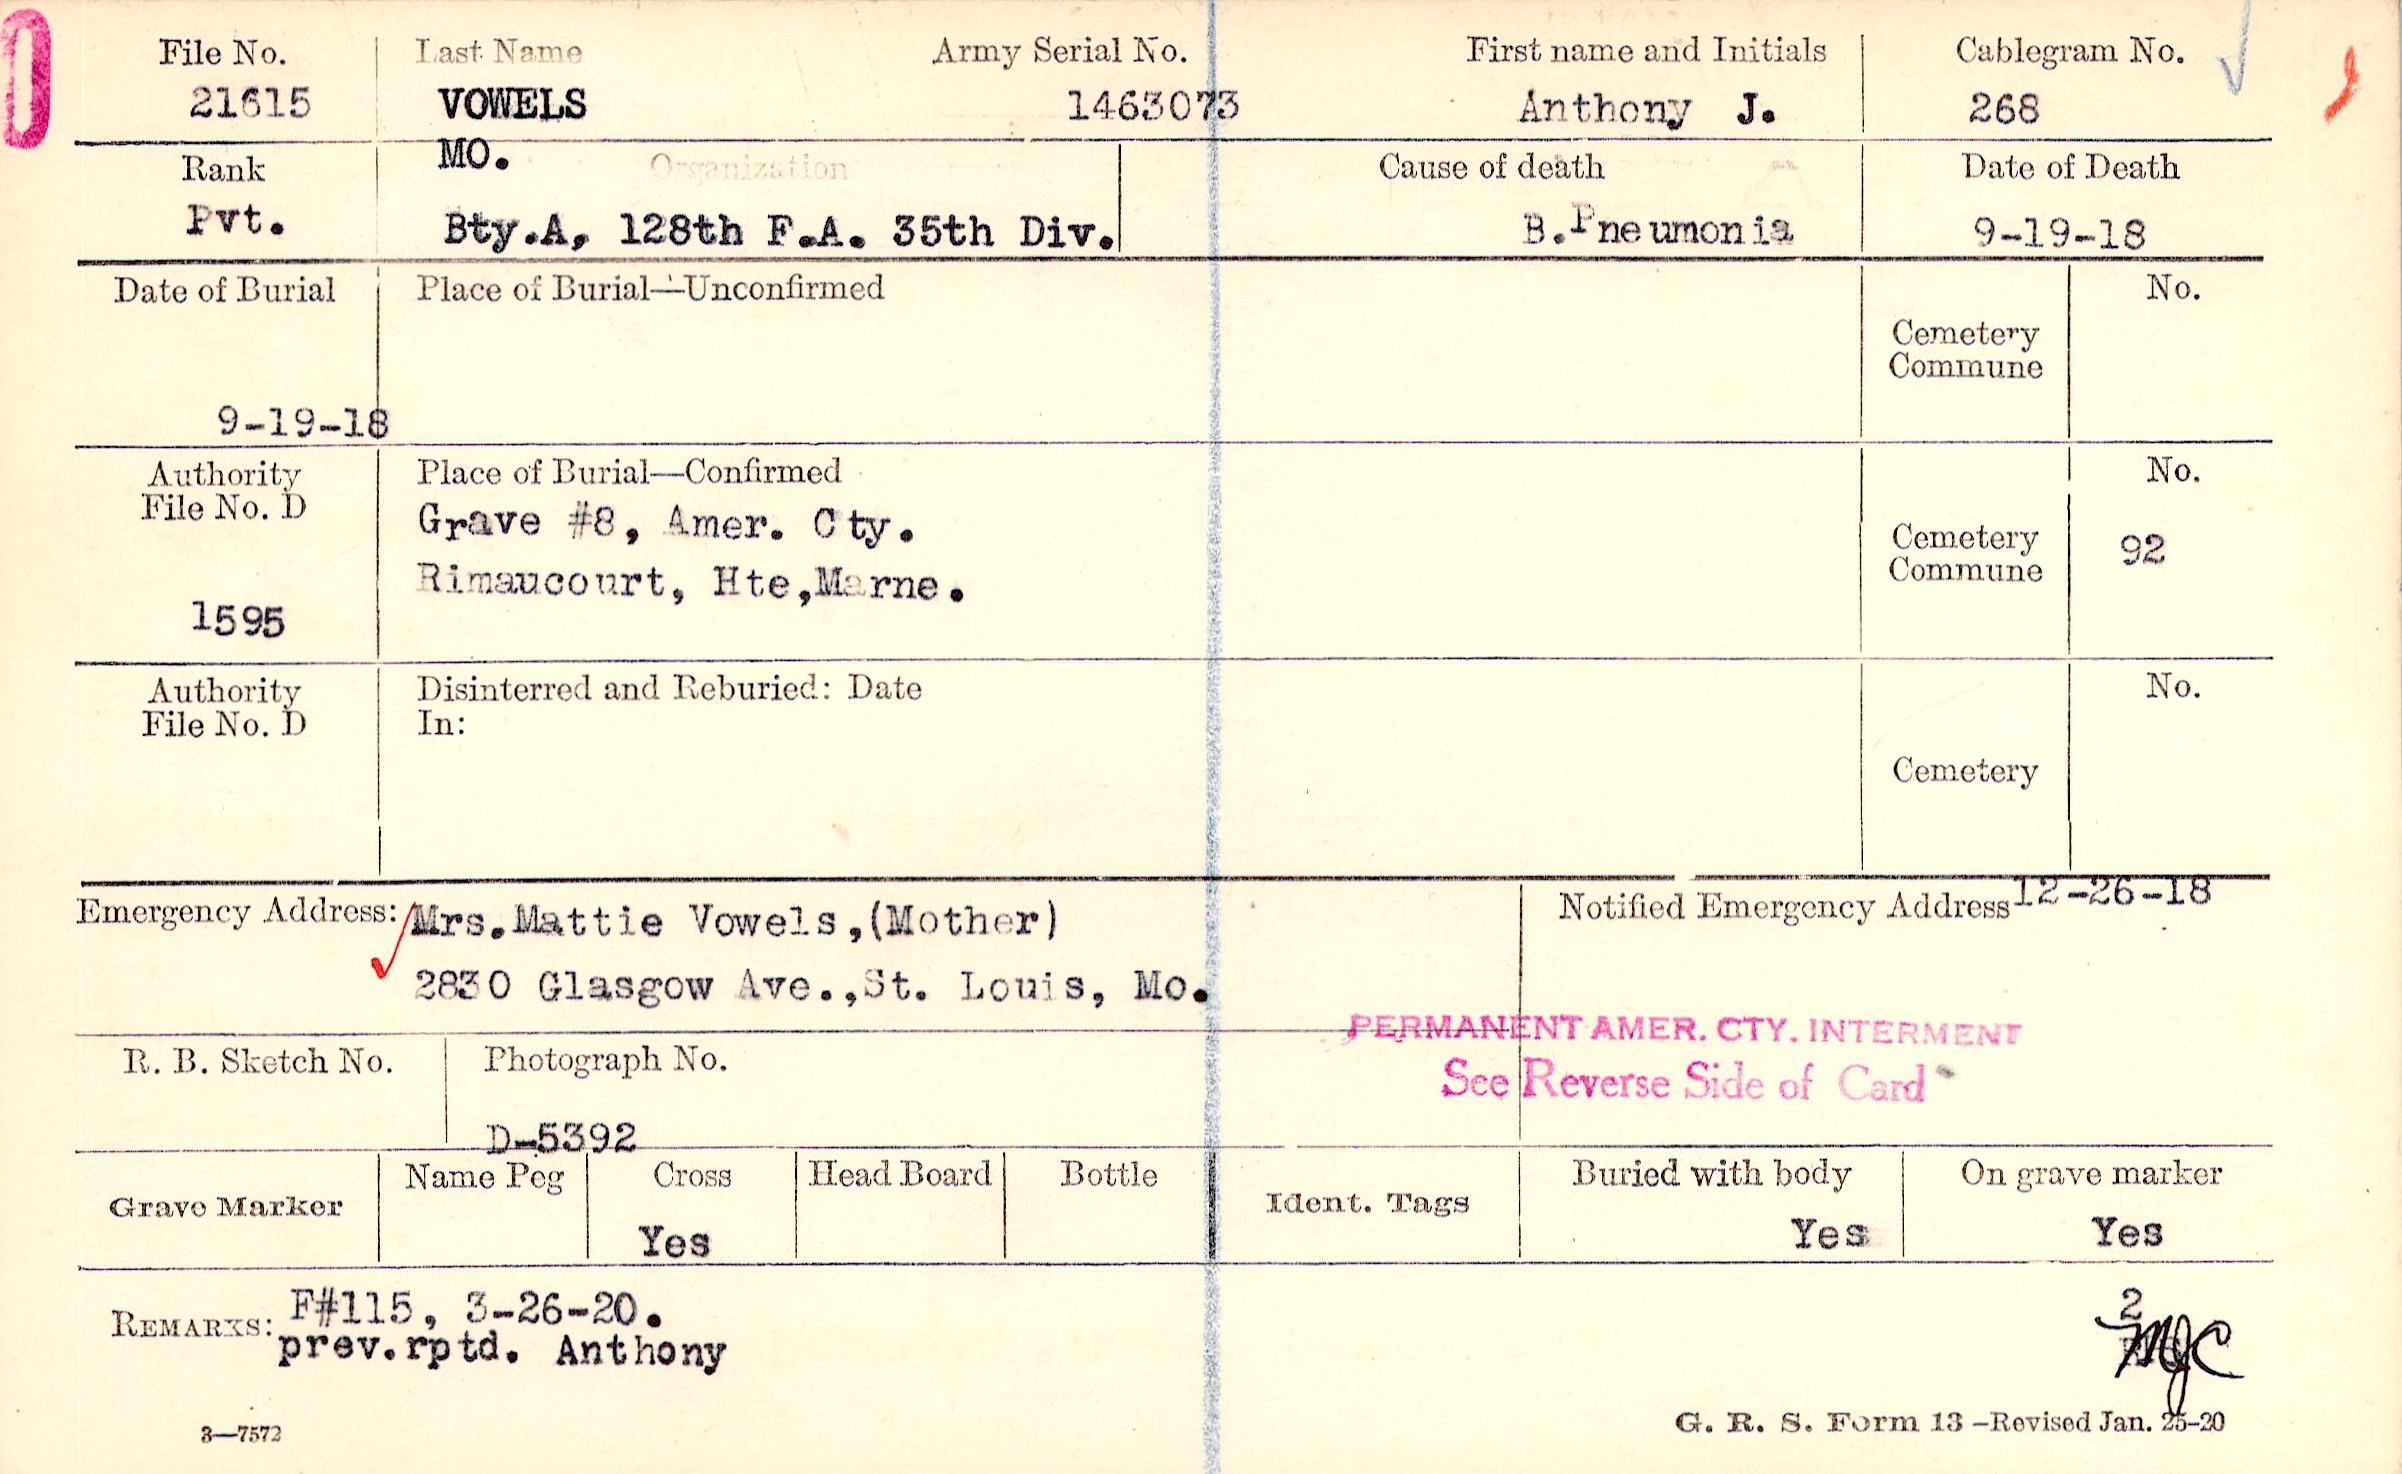 File No. Last Name Army Serial No. First name and Initials Cablegram No.
21615 VOWELS 1463073 Anthony J. 268
MO.
Rank Organization Cause of death Date of Death
Pvt. Bty.A, 128th F.A. 35th Div. B.Pneumonia 9-19-18
Date of Burial Place of Burial—Unconfirmed No.
Cemetery
Commune
9-19-18
Authority Place of Burial—Confirmed No.
File No. D Grave #8, Amer. Cty.
Cemetery
Commune 92
Rimaucourt, Hte,Marne.
1595
Authority Disinterred and Reburied: Date No.
File No. D In:
Cemetery
Emergency Address: Mrs.Mattie Vowels,(Mother) Notified Emergency Address 12-26-18
2830 Glasgow Ave.,St. Louis, Mo.
PERMANENT AMER. CTY. INTERMENT
R. B. Sketch No. Photograph No. See Reverse Side of Card
D-5392
Grave Marker Name Peg Cross Head Board Bottle Ident. Tags Buried with body On grave marker
Yes Yes Yes
REMARKS: F#115, 3-26-20. 2
prev.rptd. Anthony MJC
3—7572 G. R. S. Form 13 —Revised Jan. 25-20